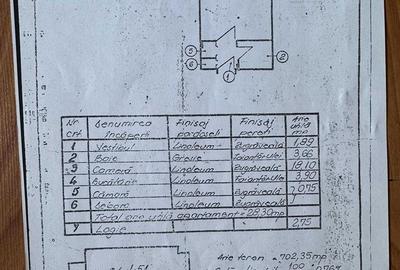 5
6
1
2
Nr. crt. Denumirea încăperii Finisaj pardoseli Finisaj pereți Arie utilă mp
1 Vestibul Linoleum Zugrăveală 1,99
2 Baie Gresie Faianță+Ulei 3,66
3 Cameră Linoleum Zugrăveală 18,10
4 Bucătărie Linoleum Faianță+Ulei 3,90
5 Cămară Linoleum Zugrăveală 0,75
6 Debara Linoleum Zugrăveală
Total arie utilă apartament = 28,30 mp
7 Logie 2,75
Arie teren = 702,35 mp